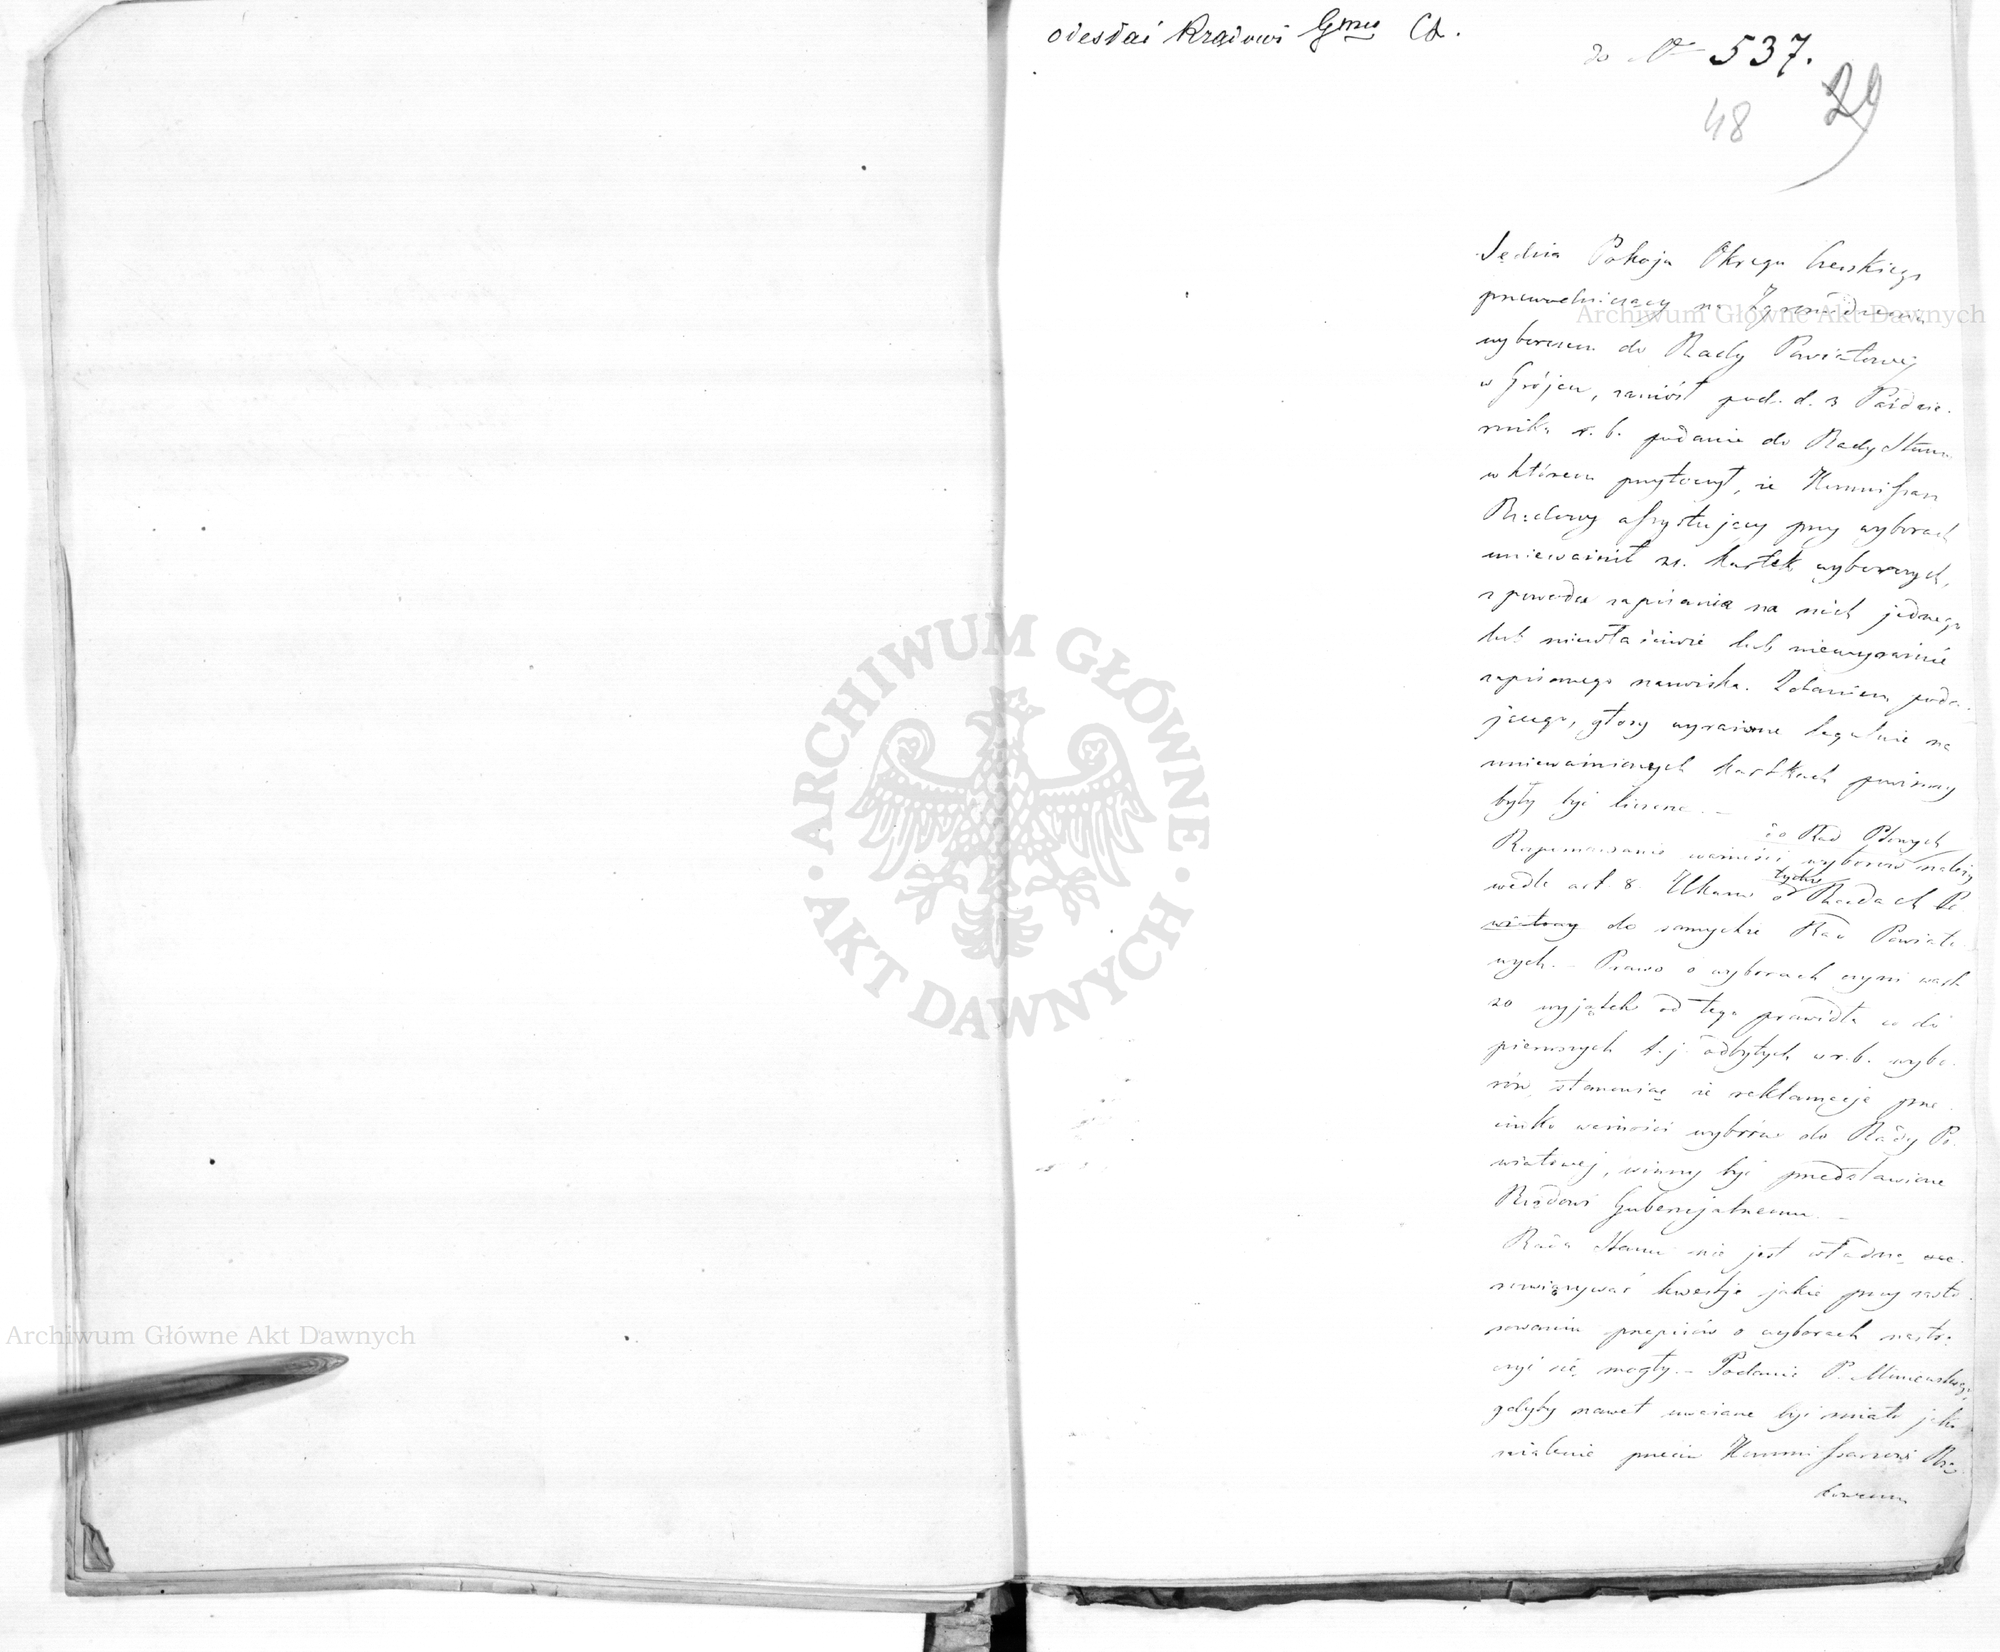 odesłać Rządowi Gmu
do No 537.
48
29
Sędzia Pokoju Okręgu Czerskiego
przewodniczący na Zgromadzeniu
wyborczem do Rady Powiatowej
w Grójcu, zaniósł pod. d. 3 Paździe-
rnika r. b. podanie do Rady Stanu
w którem przytoczył, że Kommissarz
Rządowy assystujący przy wyborach
unieważnił 21. kartek wyborczych,
z powodu zapisania na nich jednego
lub niewłaściwie lub niewyraźnie
zapisanego nazwiska. Zdaniem poda-
jącego, głosy wyrażone legalnie na
unieważnionych kartkach powinny
były być liczone. –
do Rad Ptowych
Rozpoznawanie ważności wyborów należy
wedle art. 8. Ukazu o tychże Radach Po
wiatowy do samychże Rad Powiato-
wych. – Prawo o wyborach czyni wszak
że wyjątek od tego prawidła co do
pierwszych t. j. odbytych w r. b. wybo-
rów, stanowiąc że reklamacje prze-
ciwko ważności wyborów do Rady Po-
wiatowej, winny być przedstawione
Rządowi Gubernjalnemu. –
Rada Stanu nie jest władną
rozwiązywać kwestje jakie przy zasto-
sowaniu przepisów o wyborach nastrę-
czyć się mogły. – Podanie P. Miniewskiego
gdyby nawet uważane być miało jako
zażalenie przeciw Kommissarzowi Rzą-
dowemu